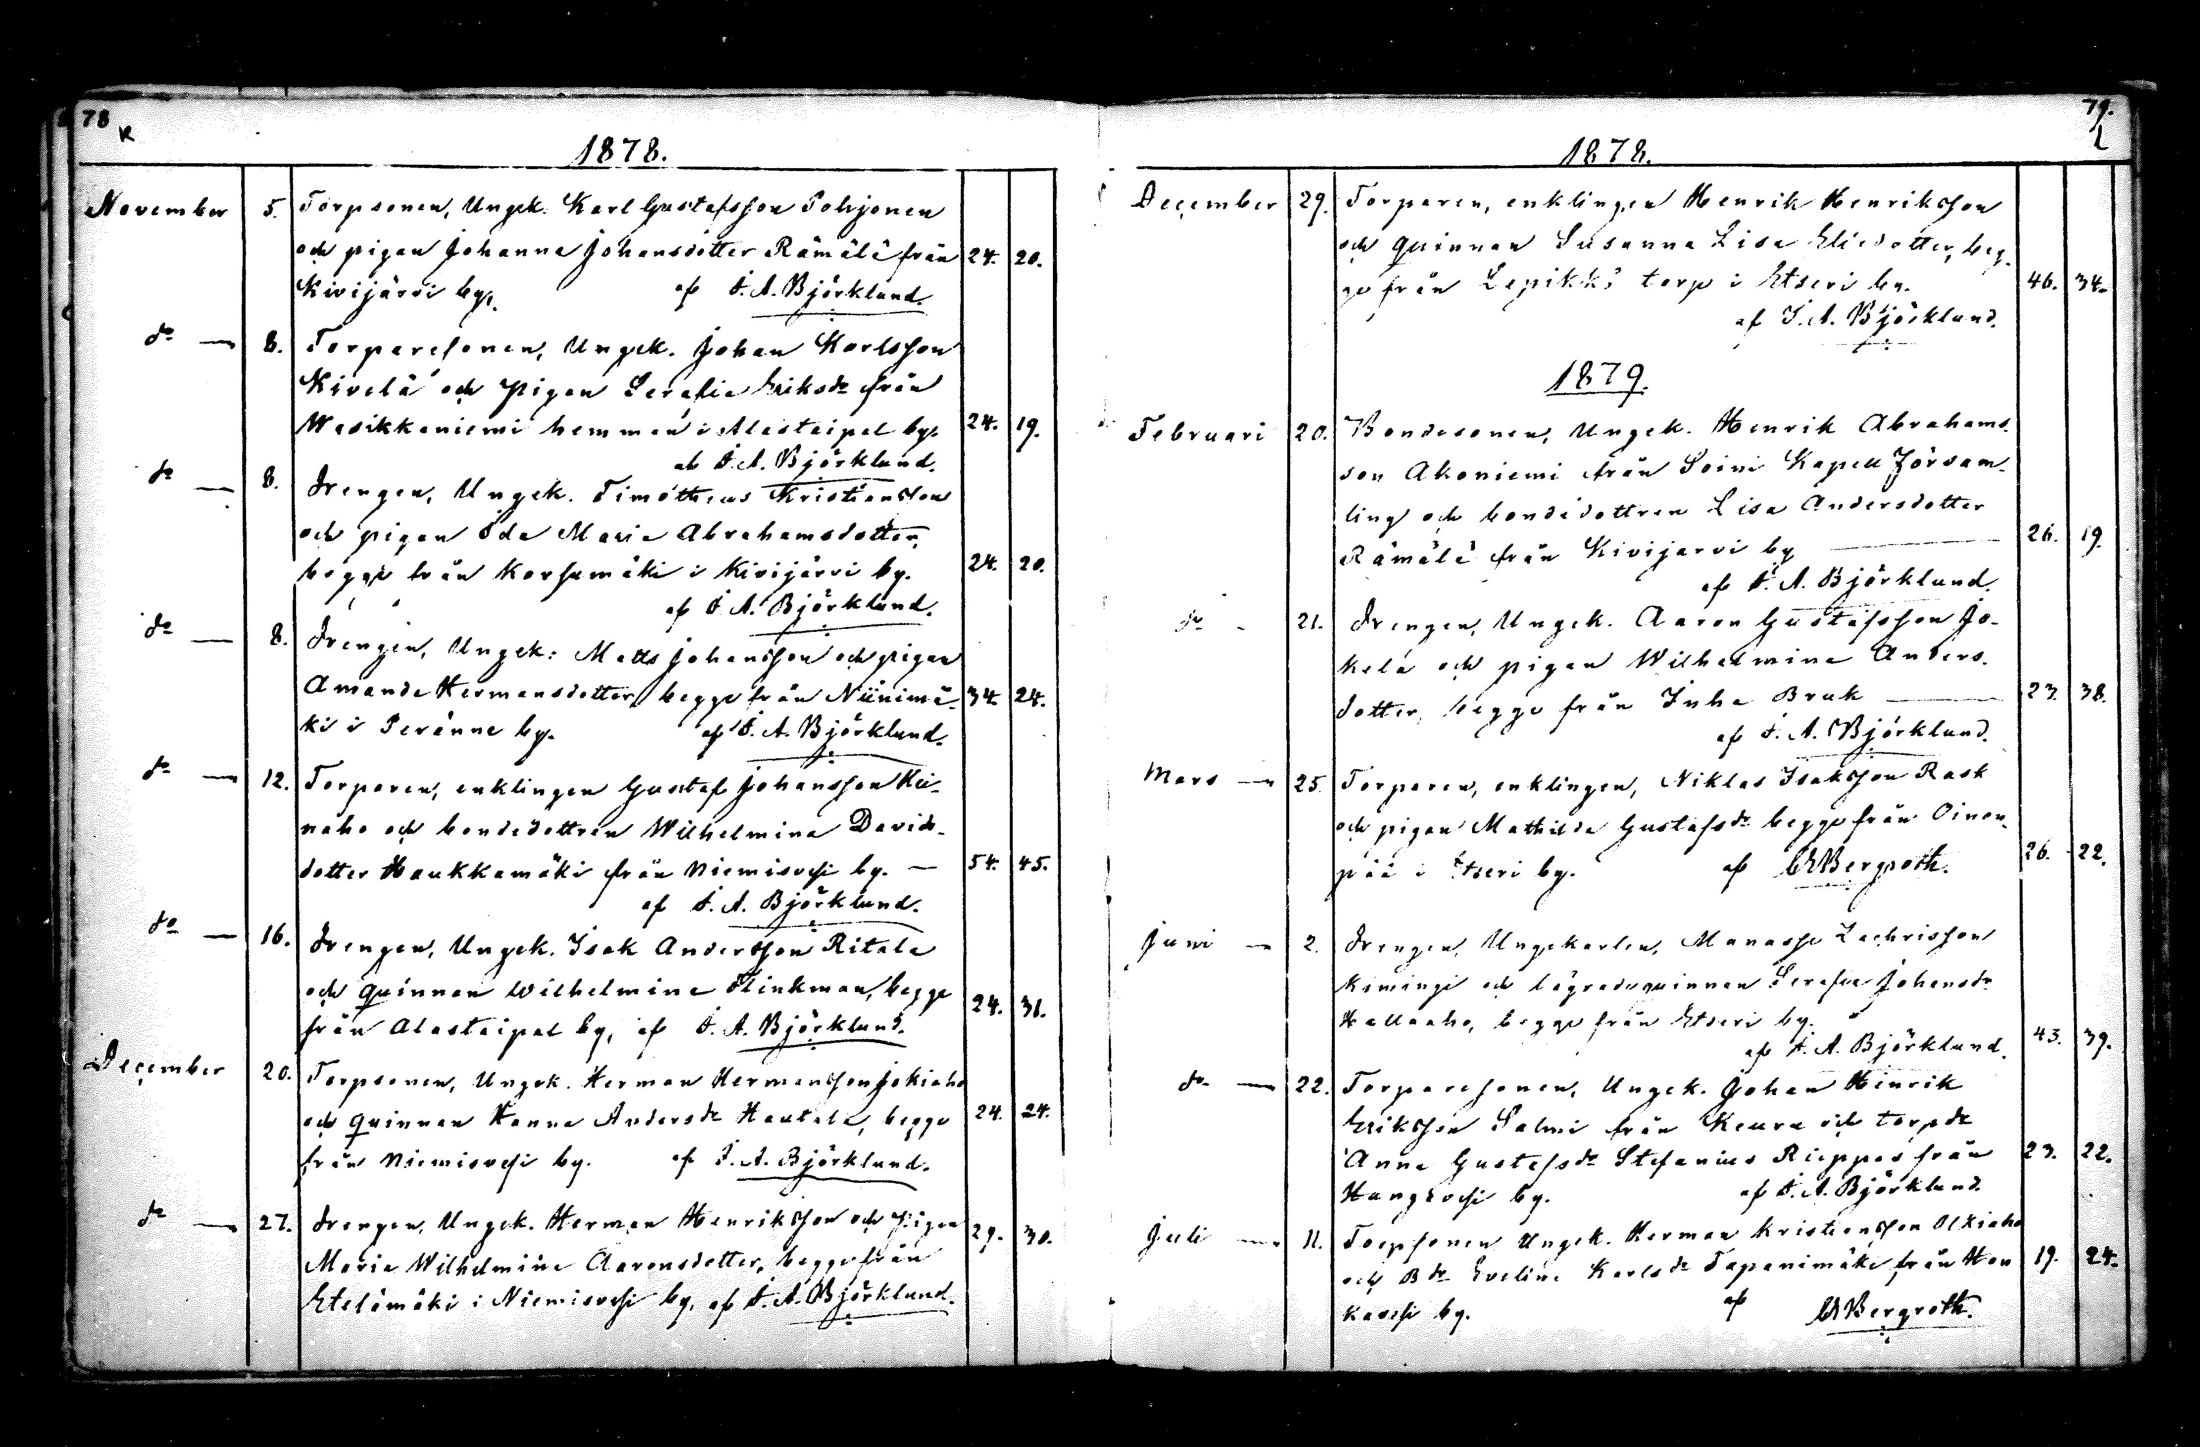 78
K
1878.
November 5. Torpsonen, Ungk. Karl Gustafsson Pohjonen
och pigan Johanna Johansdotter Rämälä från 24. 20.
Kivijärvi by, af I. A. Björklund.
do — 8. Torparesonen, Ungk. Johan Karlsson
Kivelä och Pigan Serafia Eriksdr från
Wasikkaniemi hemman i Alastaipal by, 24. 19.
af I. A. Björklund.
do — 8. Drengen, Ungk. Timotheus Kristiansson
och pigan Ida Maria Abrahamsdotter,
begge från Korsumäki i Kivijärvi by. 24. 20.
af I. A. Björklund.
do — 8. Drengen, Ungk: Matts Johansson och pigan
Amanda Hermansdotter, begge från Niinimä- 34. 24.
ki i Peränne by. af I. A. Björklund.
do — 12. Torparen, enklingen Gustaf Johansson Kii-
naho och bondedottren Wilhelmina Davids-
dotter Haukkamäki från Niemisvesi by. — 54. 45.
af I. A. Björklund.
do — 16. Drengen, Ungk. Isak Andersson Ritala
och Quinnan Wilhelmina Flinkman, begge
från Alastaipal by, af I. A. Björklund. 24. 31.
December 20. Torpsonen, Ungk. Herman Hermansson Jokiaho
och Quinnan Hanna Andersdr Hautala, begge 24. 24.
från Niemisvesi by. af I. A. Björklund.
do — 27. Drengen, Ungk. Herman Henriksson och Pigan 29. 30.
Maria Wilhelmina Aaronsdotter, begge från
Etelämäki i Niemisvesi by, af I. A. Björklund.
79.
L
1878.
December 29. Torparen, enklingen Henrik Henriksson
och Quinnan Susanna Lisa Eliedotter, beg-
ge från Lepikkö torp i Etseri by. 46. 34.
af I. A. Björklund.
1879.
Februari 20. Bondesonen, Ungk. Henrik Abrahams-
son Akoniemi från Soini Kapell Försam-
ling och bondedottren Lisa Andersdotter
Rämälä från Kivijarvi by — 26. 19.
af I. A. Björklund.
do - 21. Drengen, Ungk. Aaron Gustafsson Jo-
kela och pigan Wilhelmina Anders-
dotter, begge från Inha Bruk — 23. 38.
af I. A. Björklund.
Mars — 25. Torparen, enklingen, Niklas Isaksson Rask
och pigan Mathilda Gustafsdr begge från Oinon-
pää i Etseri by. af Bergroth. 26. 22.
Juni — 2. Drengen, Ungekarlen, Manasse Zachrisson
Kimingi och lägradequinnan Serafia Johansdr
Hallaaho, begge från Etseri by.
af I. A. Björklund. 43. 39.
do — 22. Torparesonen, Ungk. Johan Hinrik
Eriksson Salmi från Keuru och torpdr
Anna Gustafsdr Stefanius Rieppas från 23. 22.
Hangovesi by. af I. A. Björklund.
Juli — 11. Torpsonen Ungk. Herman Kristiansson Olkiaho
och Bdr Evelina Karlsdr Tapanimäki från Hon 19. 24.
kavesi by. af Bergroth.